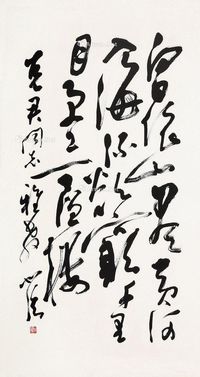 白日依山尽黄河
入海流欲穷千里
目更上一层楼
克君同志雅教